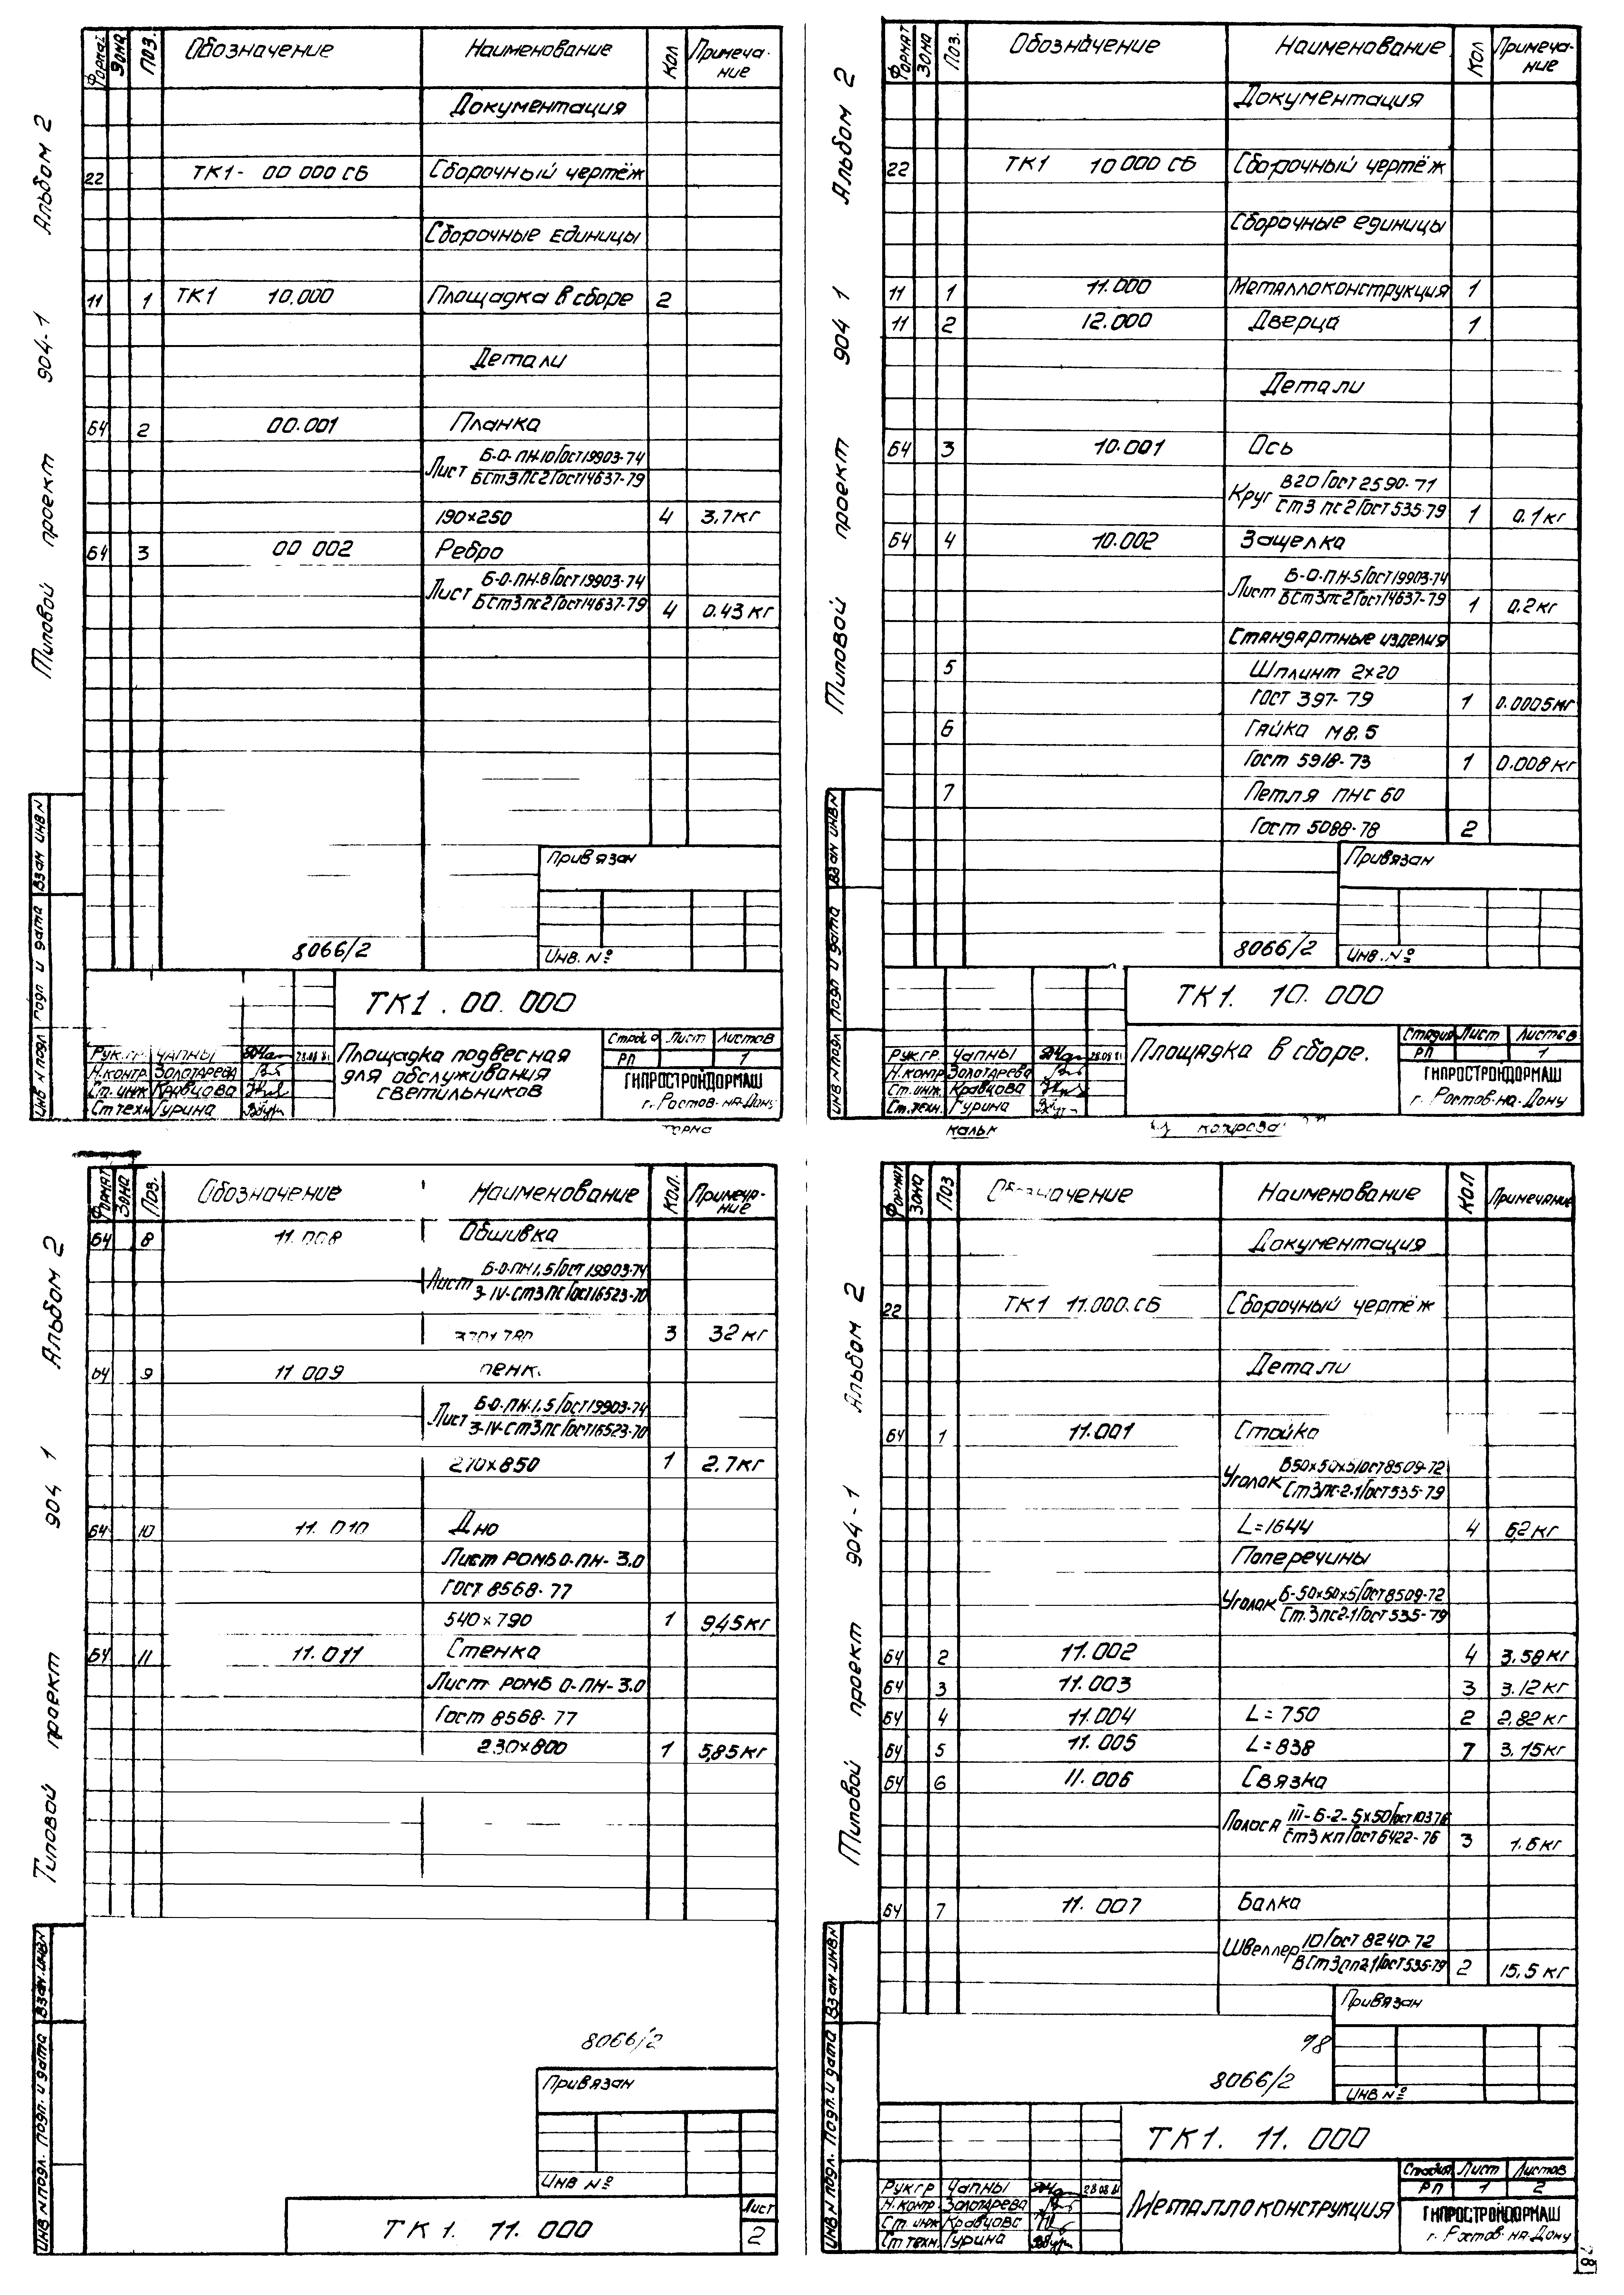 Альбом 2
904-1
Типовой проект
Формат Зона Поз. Обозначение Наименование Кол Примеча-ние
Документация
22 ТК1- 00 000 СБ Сборочный чертёж
Сборочные единицы
11 1 ТК1 10.000 Площадка в сборе 2
Детали
Б4 2 00.001 Планка
Лист Б-О-ПН-10 Гост 19903-74
БСт3пс2 Гост 14637-79
190×250 4 3,7кг
Б4 3 00 002 Ребро
Лист Б-О-ПН-8 Гост 19903-74
БСт3пс2 Гост 14637-79 4 0.43 кг
Привязан
8066/2
Инв. №
Инв № подл Подп и дата Взам инв №
ТК1 . 00. 000
Рук.гр. Чапны 28.08 81
Н.контр. Золотарева
Ст. инж Кравцова
Ст техн. Гурина
Площадка подвесная
для обслуживания
светильников
Лист Листов
РП 1
ГИПРОСТРОЙДОРМАШ
г. Ростов-на-Дону
Альбом 2
904 1
Типовой проект
Формат Зона Поз. Обозначение Наименование Кол Примеча-ние
Документация
22 ТК1 10 000 СБ Сборочный чертёж
Сборочные единицы
11 1 11.000 Металлоконструкция 1
11 2 12.000 Дверца 1
Детали
Б4 3 10.001 Ось
Круг В20 Гост 2590-71
Ст3 пс2 Гост 535-79 1 0.1 кг
Б4 4 10.002 Защелка
Лист Б-О-ПН-5 Гост 19903-74
БСт3пс2 Гост 14637-79 1 0.2 кг
Стандартные изделия
5 Шплинт 2×20
Гост 397-79 1 0.0005 кг
6 Гайка М8.5
Гост 5918-73 1 0.008 кг
7 Петля ПНС 60
Гост 5088-78 2
Привязан
8066/2
Инв. №
Инв № подл Подп и дата Взам инв №
ТК1. 10. 000
Рук.гр. Чапны 28.08 81
Н.контр Золотарева
Ст. инж. Кравцова
Ст. техн. Гурина
Площадка в сборе.
Стадия Лист Листов
РП 1
ГИПРОСТРОЙДОРМАШ
г. Ростов-на-Дону
кальк
Альбом 2
904 1
Типовой проект
Формат Зона Поз. Обозначение Наименование Кол. Примеча-ние
Б4 8 11.008 Обшивка
Лист Б-О-ПН 1,5 Гост 19903-74
3-IV-Ст3пс Гост 16523-70
3 32 кг
Б4 9 11 009
Лист Б-О-ПН-1,5 Гост 19903-74
3-IV-Ст3пс Гост 16523-70
270×850 1 2.7 кг
Б4 10 11. 010 Дно
Лист РОМБ О-ПН- 3.0
Гост 8568-77
540×790 1 9,45 кг
Б4 11 11.011 Стенка
Лист РОМБ О-ПН- 3.0
Гост 8568-77
230×800 1 5,85 кг
8066/2
Привязан
Инв №
Инв № подл. Подп. и дата Взам. инв №
ТК 1. 11. 000
Лист
2
Альбом 2
904-1
Типовой проект
Формат Зона Поз Обозначение Наименование Кол Примечание
Документация
22 ТК1 11.000.СБ Сборочный чертёж
Детали
Б4 1 11.001 Стойка
Уголок Б50×50×5 Гост 8509-72
Ст3пс-2-1 Гост 535-79
L=1644 4 6,2 кг
Поперечины
Уголок Б-50×50×5 Гост 8509-72
Ст.3пс2-1 Гост 535-79
Б4 2 11.002 4 3,58 кг
Б4 3 11.003 3 3.12 кг
Б4 4 11.004 L = 750 2 2,82 кг
Б4 5 11.005 L = 838 7 3.15 кг
Б4 6 11.006 Связка
Полоса III-Б-2-5×50 Гост 103 76
Ст3 кп Гост 6422-76 3 1.6 кг
Б4 7 11. 007 Балка
Швеллер 10 Гост 8240-72
ВСт3сп2-1 Гост 535-79 2 15,5 кг
Привязан
98
8066/2
Инв №
Инв № подл. Подп. и дата Взам инв №
ТК1. 11. 000
Рук.гр Чапны 28 08 81
Н.контр Золотарева
Ст. инж Кравцова
Ст техн. Гурина
Металлоконструкция
Стадия Лист Листов
РП 1 2
ГИПРОСТРОЙДОРМАШ
г. Ростов-на-Дону